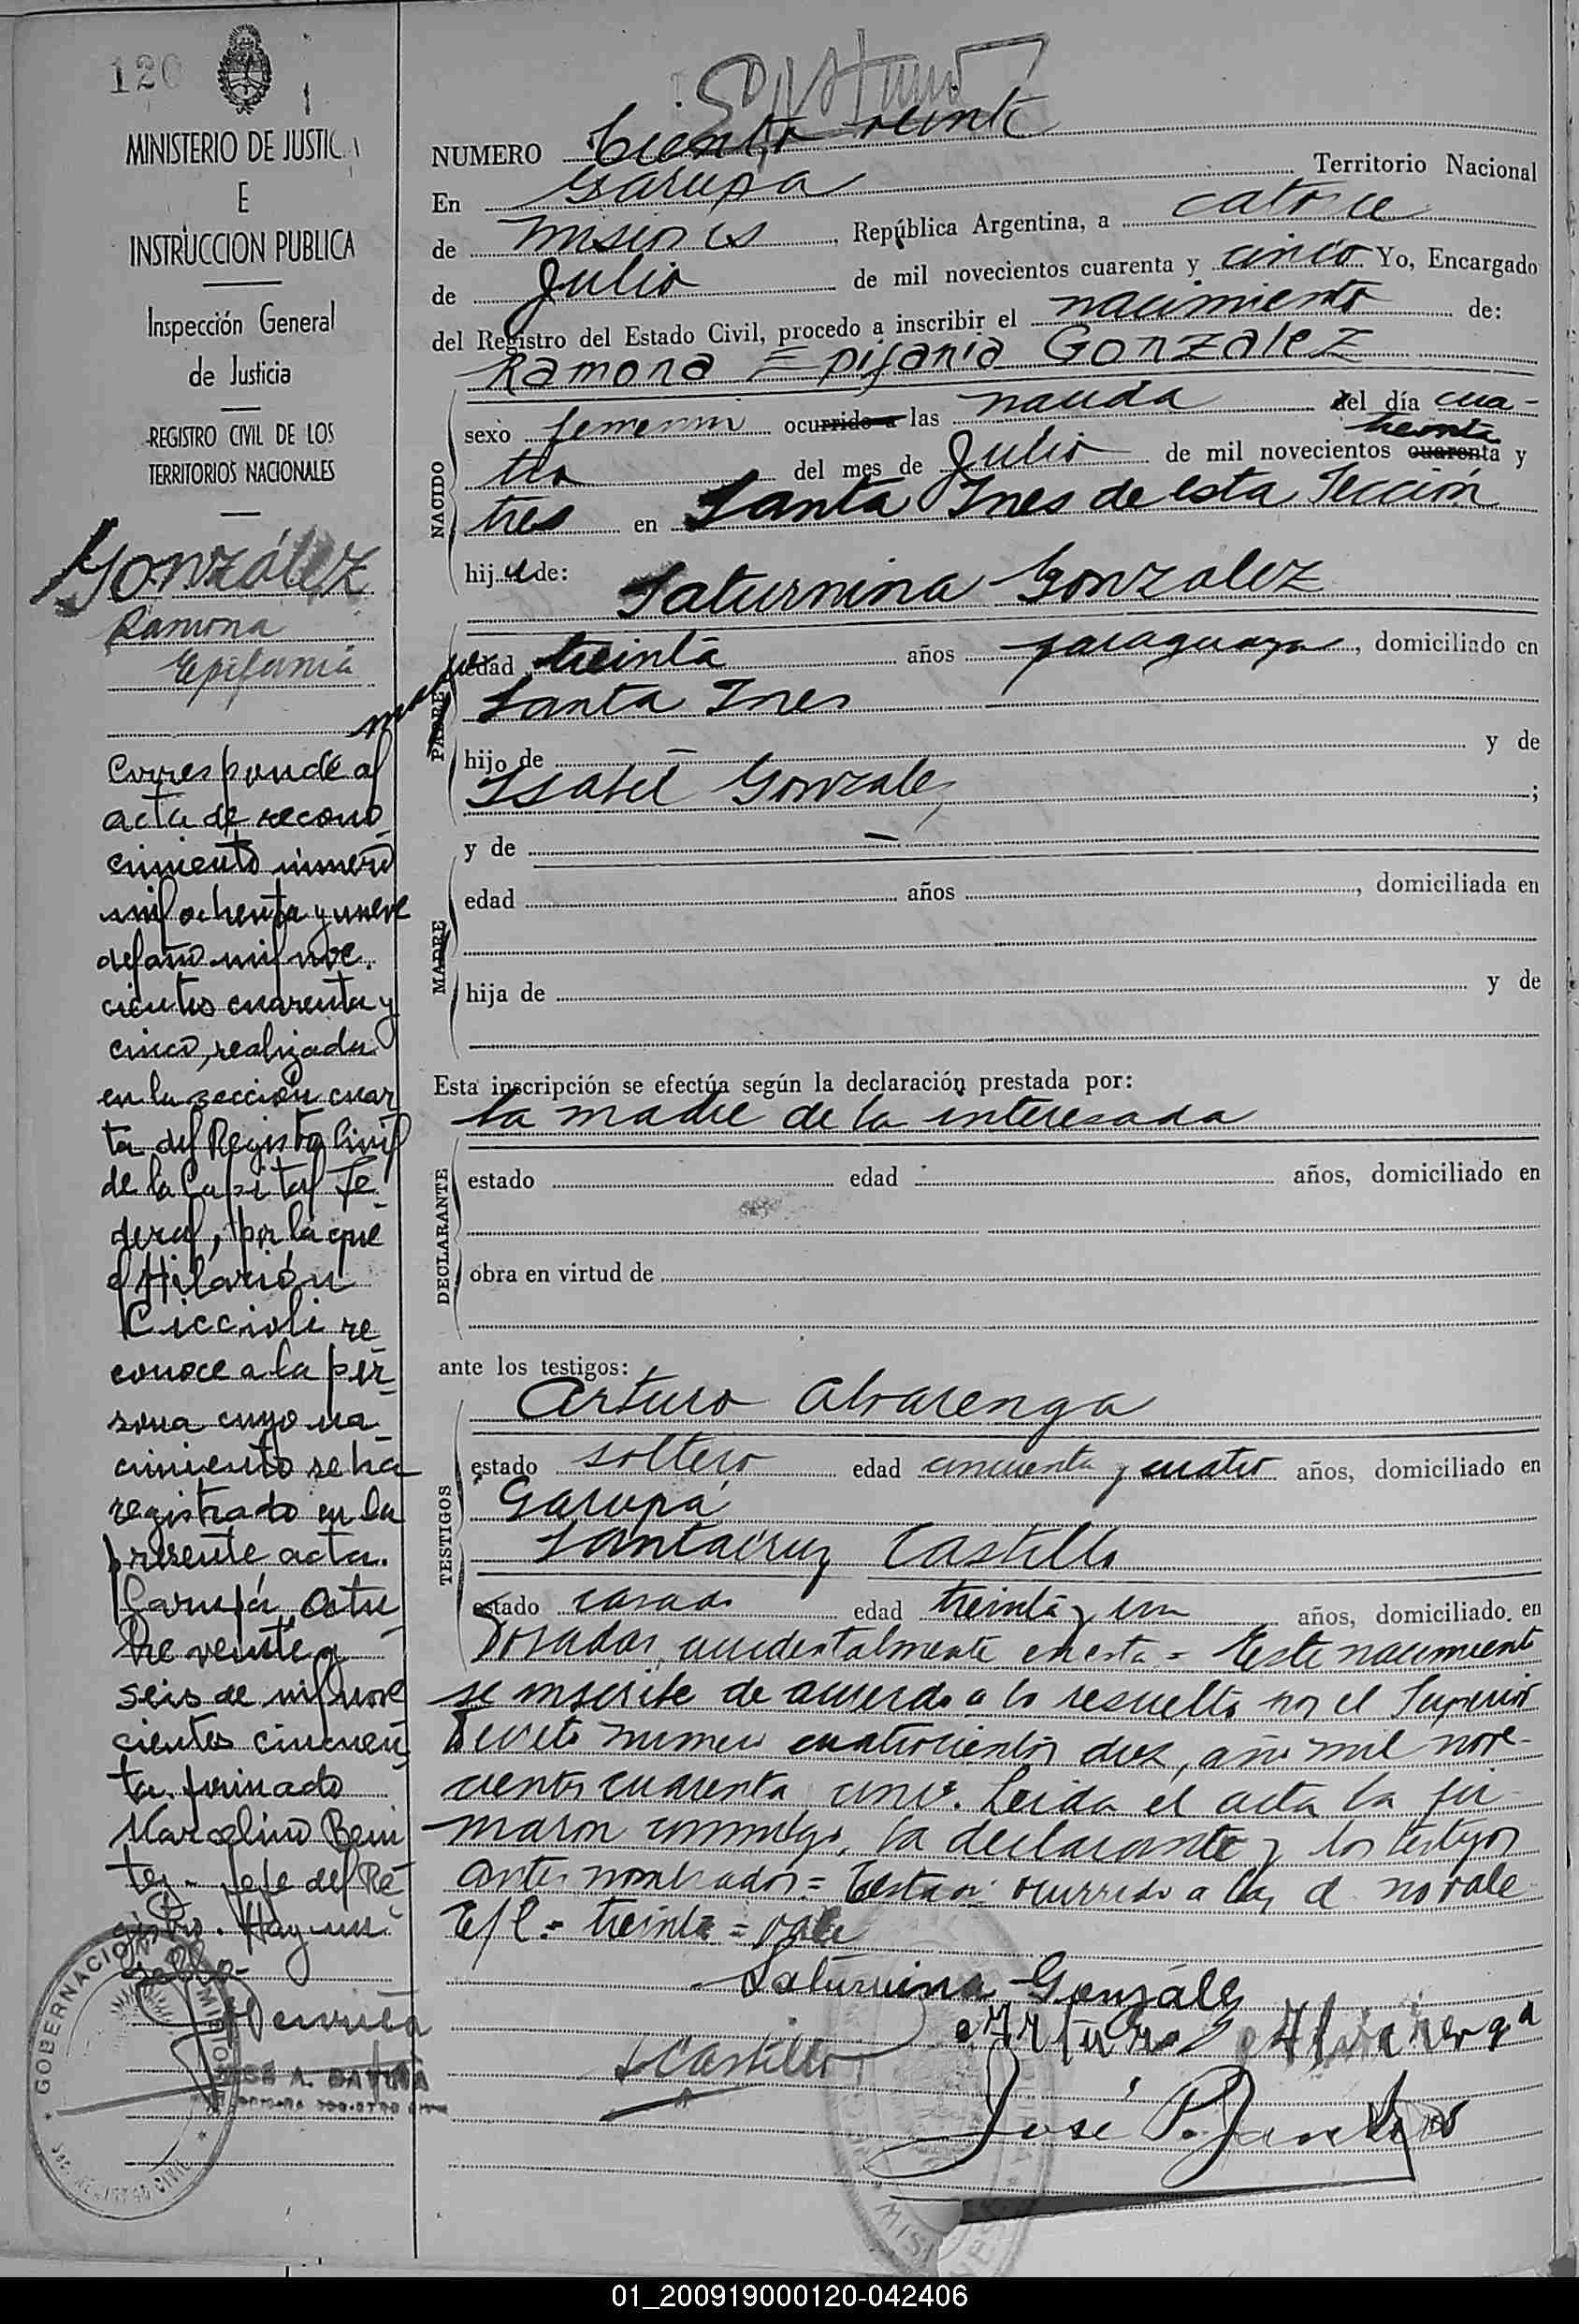 120
MINISTERIO DE JUSTIC
E
INSTRUCCION PUBLICA
Inspección General
de Justicia
REGISTRO CIVIL DE LOS
TERRITORIOS NACIONALES
González
Ramona
Epifania
Corresponde al
acta de recono
cimiento número
mil ochenta y nueve
del año mil nove
cientos cuarenta y
cinco, realizada
en la sección cuar
ta del Registro Civil
de la Capital Fe
deral, por la que
d Hilarión
Ciccioli re
conoce a la per
sona cuyo na
cimiento se ha
registrado en la
presente acta.
Garupá, Octu
bre veinte y
seis de mil nove
cientos cincuen
ta. firmado
Marcelino Beni
tez - Jefe del Re
gistro. Hay un
sello.
GOBERNACION MISIONES
REGISTRO CIVIL
NUMERO Ciento veinte
En Garupa Territorio Nacional
de Misiones, República Argentina, a catorce
de Julio de mil novecientos cuarenta y cinco Yo, Encargado
del Registro del Estado Civil, procedo a inscribir el nacimiento de:
Ramona Epifania Gonzalez
NACIDO
sexo femenin ocurrido a las nacida del día cua-
treinta
tro del mes de Julio de mil novecientos cuarenta y
tres en Santa Ines de esta Sección
hija de:
Saturnina Gonzalez
PADRE madre
edad treinta años paraguaya, domiciliado en
Santa Ines
hijo de — y de
Isabel Gonzalez;
MADRE
y de —
edad años, domiciliada en
hija de y de
Esta inscripción se efectúa según la declaración prestada por:
la madre de la interesada
DECLARANTE
estado edad años, domiciliado en
obra en virtud de
ante los testigos:
TESTIGOS
Arturo Alvarenga
estado soltero edad cincuenta y cuatro años, domiciliado en
Garupá
Santacruz Castillo
estado casado edad treinta y un años, domiciliado en
Posadas, accidentalmente en esta = Este nacimiento
se inscribe de acuerdo a lo resuelto por el Superior
Decreto numero cuatrocientos diez, año mil nove-
cientos cuarenta cinco. Leida el acta la fir
maron conmigo, la declarante y los testigos
antes nombrados = Testado: ocurrido a las d no vale
E/l. = treinta = vale
Saturnina Gonzáles
Arturo Alvarenga
S Castillo
José P.
01_200919000120-042406